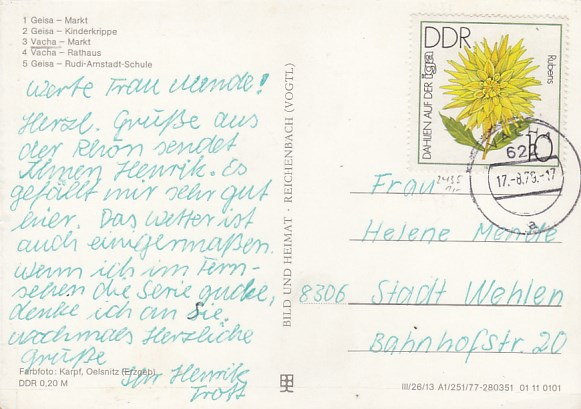 1 Geisa – Markt
2 Geisa – Kinderkrippe
3 Vacha – Markt
4 Vacha – Rathaus
5 Geisa – Rudi-Arnstadt-Schule
Werte Frau Mende!
Herzl. Grüße aus
der Rhön sendet
Ihnen Henrik. Es
gefällt mir sehr gut
hier. Das Wetter ist
auch einigermaßen.
Wenn ich im Fern-
sehen die Serie gucke,
denke ich an Sie.
nochmals Herzliche
Grüße
Ihr Henrik
Trott
Farbfoto: Karpf, Oelsnitz (Erzgeb)
DDR 0,20 M
BILD UND HEIMAT · REICHENBACH (VOGTL)
DDR
DAHLIEN AUF DER
Rubens
10
622
17.-8.79.-17
a
Frau
Helene Mende
8306 Stadt Wehlen
Bahnhofstr. 20
III/26/13 A1/251/77-280351 01 11 0101